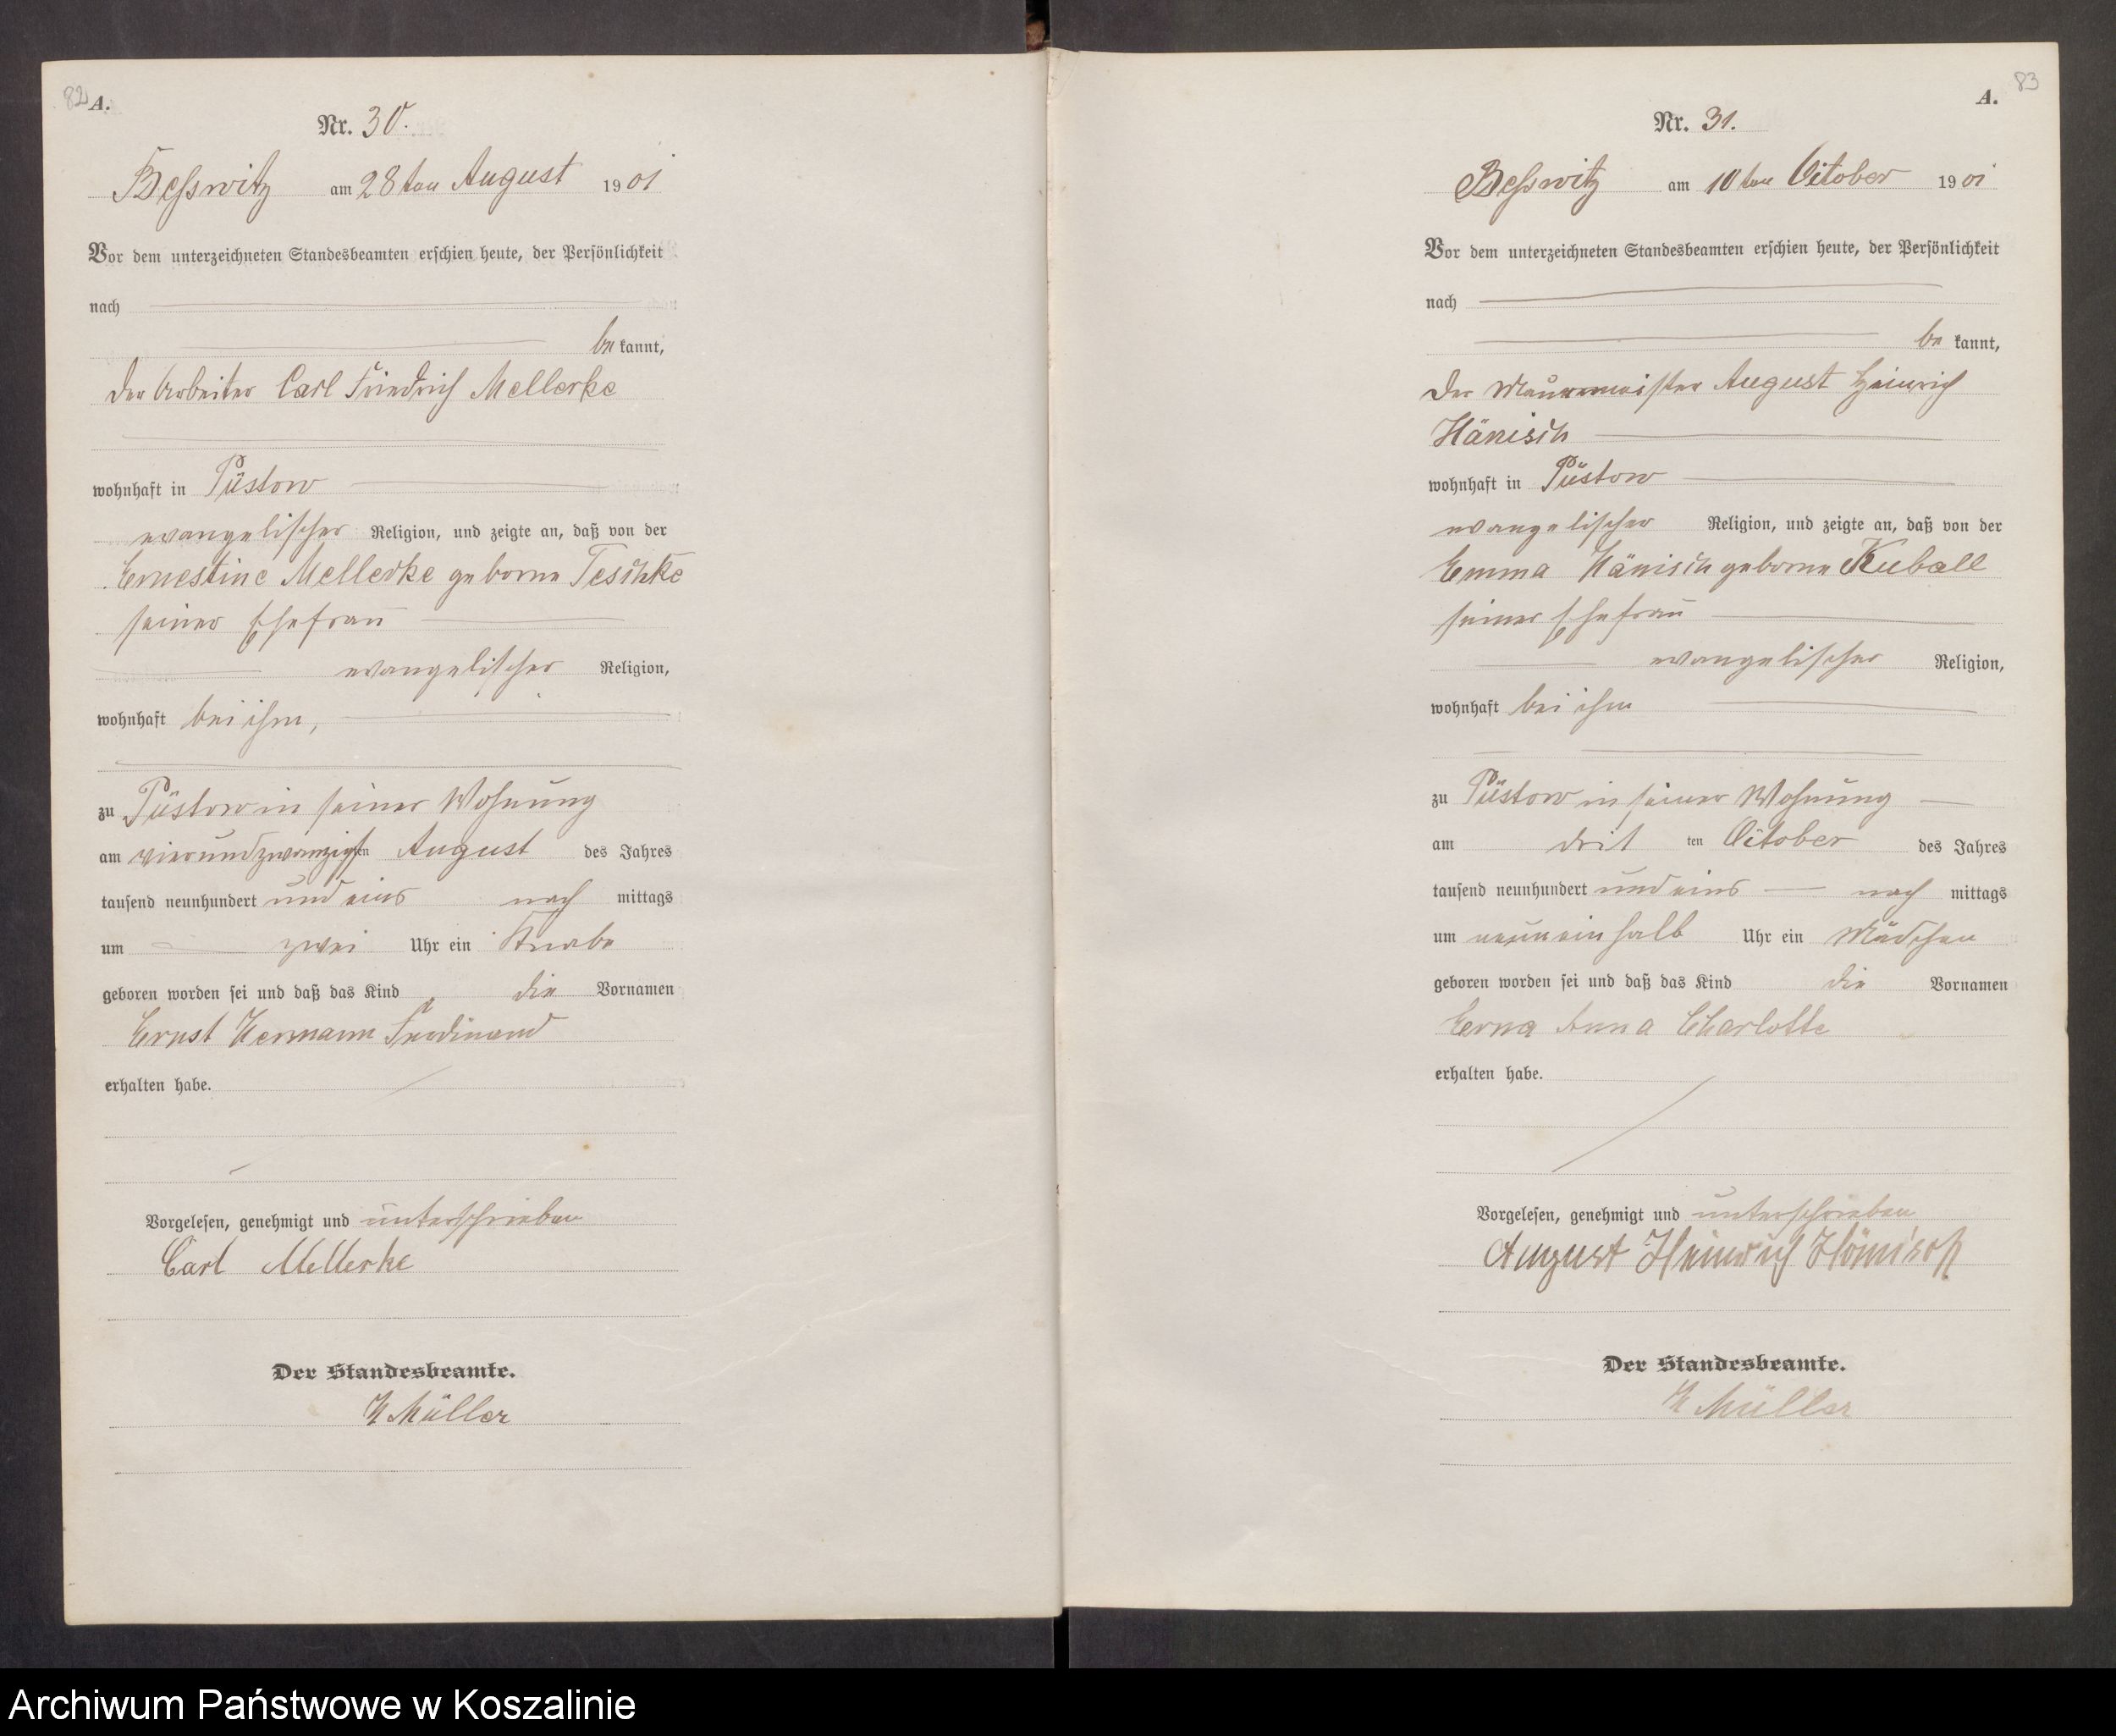 82 A.
Nr. 30.
Beßwitz am 28ten August 1901
Vor dem unterzeichneten Standesbeamten erschien heute, der Persönlichkeit
nach
be kannt,
der Arbeiter Carl Friedrich Mellerke
wohnhaft in Püstow
evangelischer Religion, und zeigte an, daß von der
Ernestine Mellerke geborne Teschke
seiner Ehefrau
evangelischer Religion,
wohnhaft bei ihm,
zu Püstow in seiner Wohnung
am vierundzwanzigsten August des Jahres
tausend neunhundert und eins nach mittags
um zwei Uhr ein Knabe
geboren worden sei und daß das Kind die Vornamen
Ernst Hermann Ferdinand
erhalten habe.
Vorgelesen, genehmigt und unterschrieben
Carl Mellerke
Der Standesbeamte.
H Müller
A. 83
Nr. 31.
Beßwitz am 10ten October 1901
Vor dem unterzeichneten Standesbeamten erschien heute, der Persönlichkeit
nach
be kannt,
der Maurermeister August Heinrich
Hänisch
wohnhaft in Püstow
evangelischer Religion, und zeigte an, daß von der
Emma Hänisch geborne Kuball
seiner Ehefrau
evangelischer Religion,
wohnhaft bei ihm
zu Püstow in seiner Wohnung
am drit ten October des Jahres
tausend neunhundert und eins nach mittags
um neuneinhalb Uhr ein Mädchen
geboren worden sei und daß das Kind die Vornamen
Erna Anna Charlotte
erhalten habe.
Vorgelesen, genehmigt und unterschrieben
August Heinrich Hänisch
Der Standesbeamte.
H Müller
Archiwum Państwowe w Koszalinie